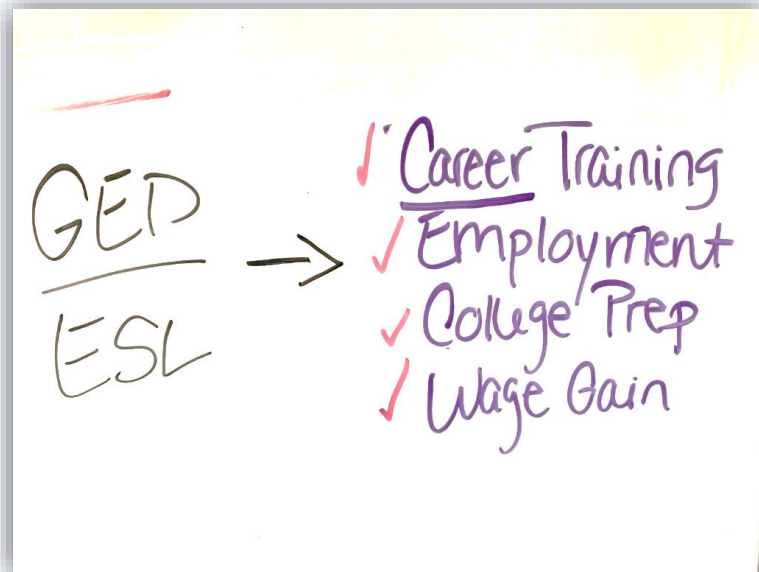 GED
ESL
Career Training
Employment
College Prep
Wage Gain